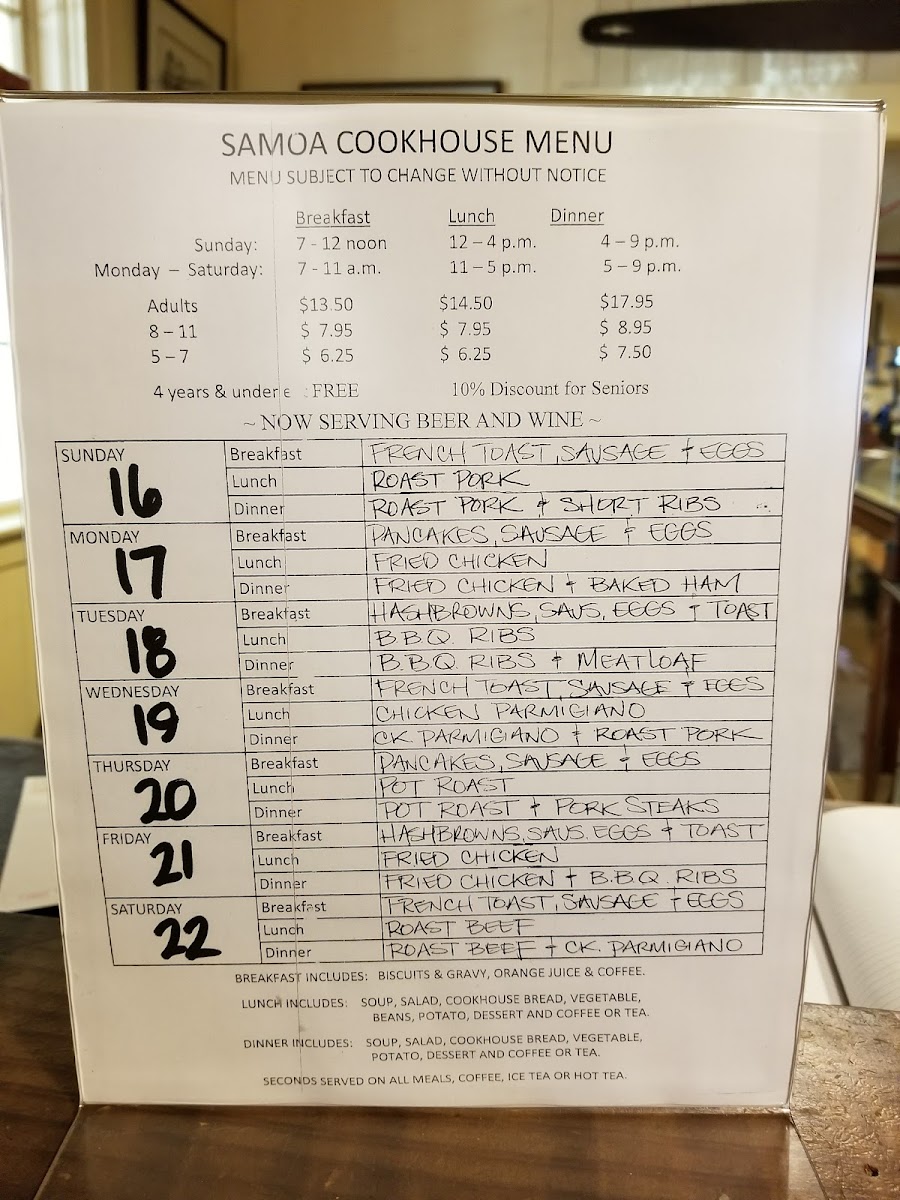 SAMOA COOKHOUSE MENU
MENU SUBJECT TO CHANGE WITHOUT NOTICE
Breakfast Lunch Dinner
Sunday: 7 - 12 noon 12 – 4 p.m. 4 – 9 p.m.
Monday – Saturday: 7 - 11 a.m. 11 – 5 p.m. 5 – 9 p.m.
Adults $13.50 $14.50 $17.95
8 – 11 $ 7.95 $ 7.95 $ 8.95
5 – 7 $ 6.25 $ 6.25 $ 7.50
4 years & under : FREE 10% Discount for Seniors
~ NOW SERVING BEER AND WINE ~
SUNDAY Breakfast FRENCH TOAST, SAUSAGE & EGGS
16 Lunch ROAST PORK
Dinner ROAST PORK & SHORT RIBS
MONDAY Breakfast PANCAKES, SAUSAGE & EGGS
17 Lunch FRIED CHICKEN
Dinner FRIED CHICKEN & BAKED HAM
TUESDAY Breakfast HASHBROWNS, SAUS, EGGS & TOAST
18 Lunch B.B.Q. RIBS
Dinner B.B.Q. RIBS & MEATLOAF
WEDNESDAY Breakfast FRENCH TOAST, SAUSAGE & EGGS
19 Lunch CHICKEN PARMIGIANO
Dinner CK. PARMIGIANO & ROAST PORK
THURSDAY Breakfast PANCAKES, SAUSAGE & EGGS
20 Lunch POT ROAST
Dinner POT ROAST & PORK STEAKS
FRIDAY Breakfast HASHBROWNS, SAUS. EGGS & TOAST
21 Lunch FRIED CHICKEN
Dinner FRIED CHICKEN & B.B.Q. RIBS
SATURDAY Breakfast FRENCH TOAST, SAUSAGE & EGGS
22 Lunch ROAST BEEF
Dinner ROAST BEEF & CK. PARMIGIANO
BREAKFAST INCLUDES: BISCUITS & GRAVY, ORANGE JUICE & COFFEE.
LUNCH INCLUDES: SOUP, SALAD, COOKHOUSE BREAD, VEGETABLE,
BEANS, POTATO, DESSERT AND COFFEE OR TEA.
DINNER INCLUDES: SOUP, SALAD, COOKHOUSE BREAD, VEGETABLE,
POTATO, DESSERT AND COFFEE OR TEA.
SECONDS SERVED ON ALL MEALS, COFFEE, ICE TEA OR HOT TEA.